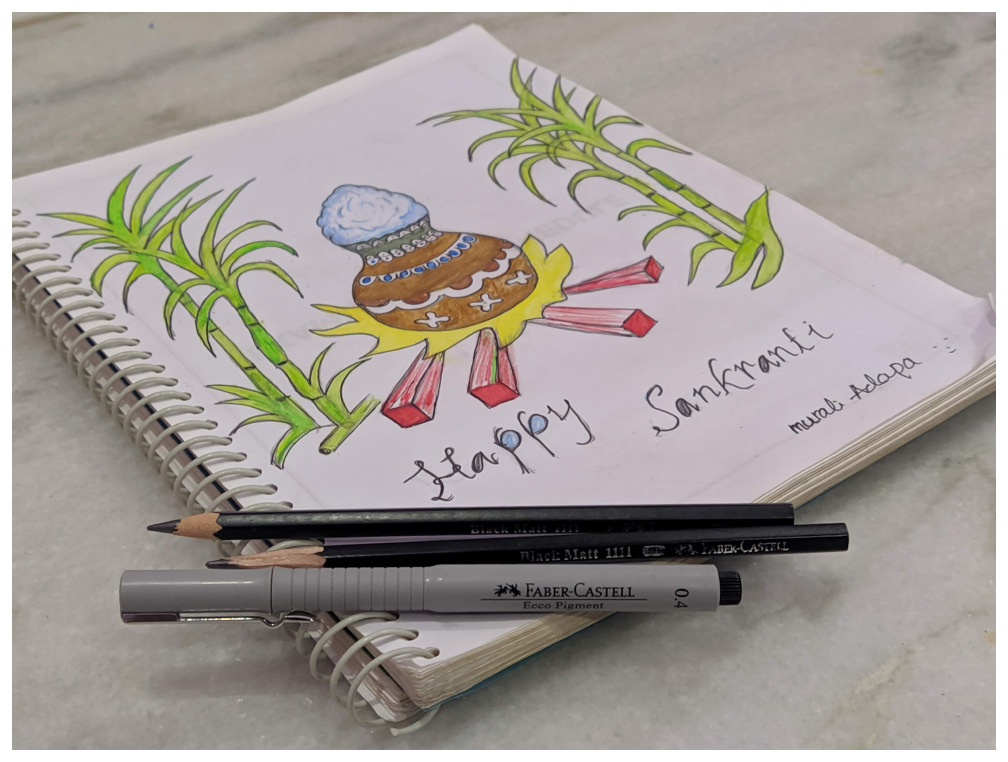 Happy Sankranti
murali Adapa
Black Matt 1111
Black Matt 1111 FABER-CASTELL
FABER-CASTELL
Ecco Pigment
0.4